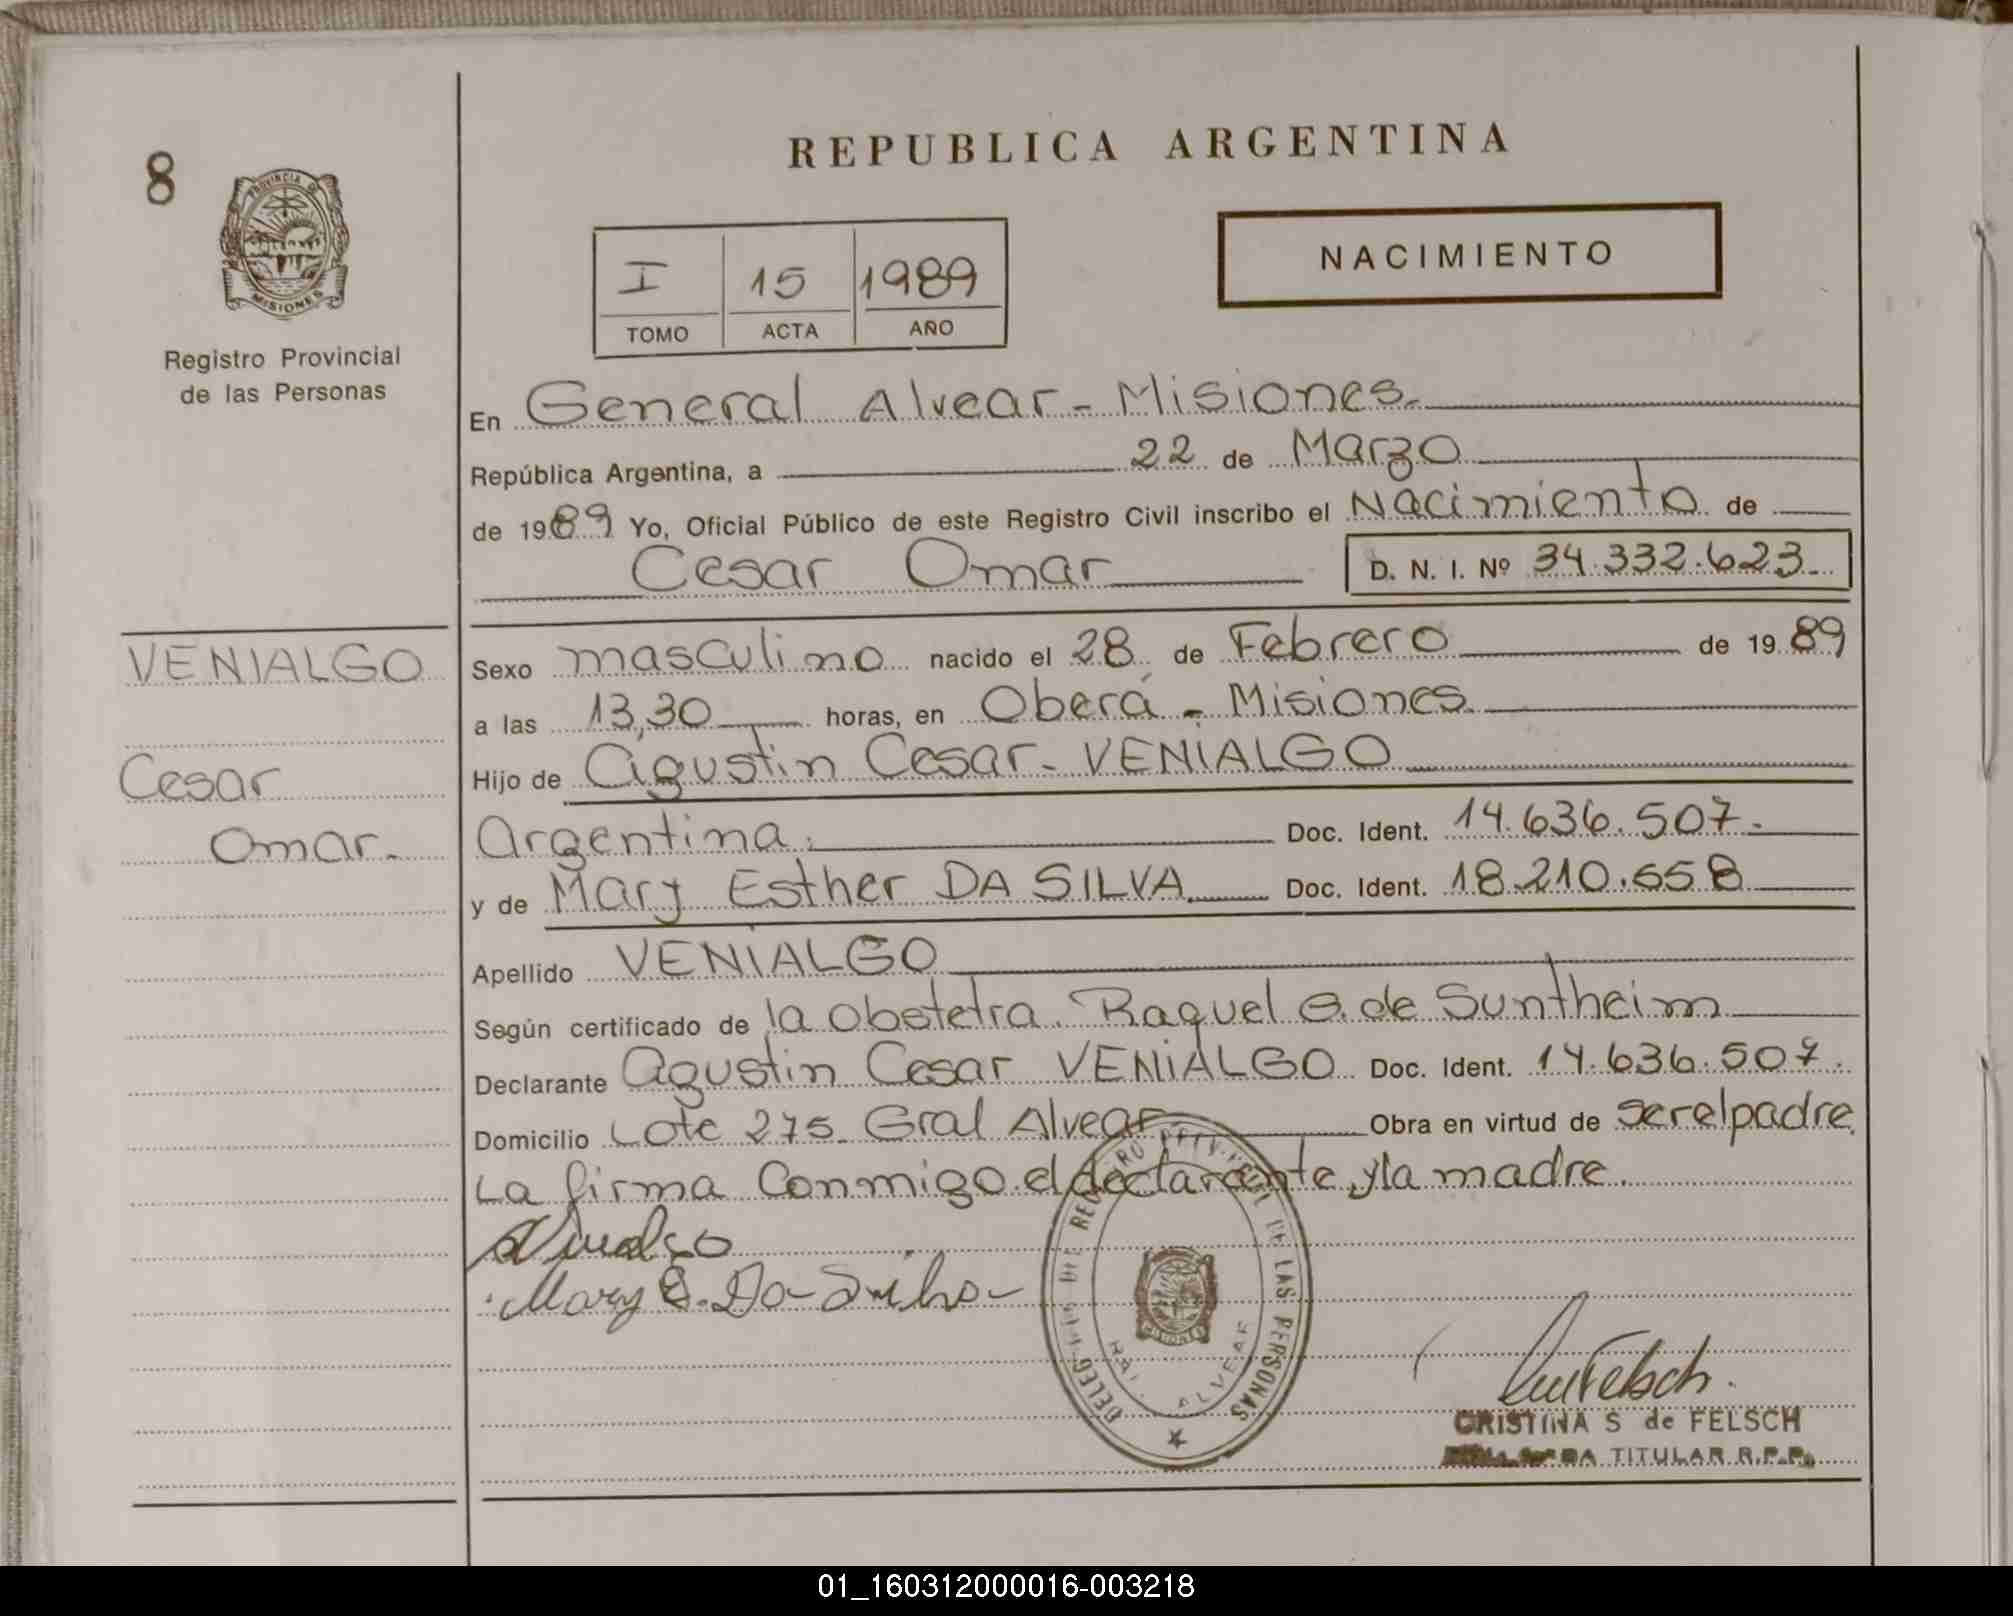 8
PROVINCIA DE
MISIONES
Registro Provincial
de las Personas
VENIALGO
Cesar
Omar.
REPUBLICA ARGENTINA
NACIMIENTO
I 15 1989
TOMO ACTA AÑO
En General Alvear - Misiones.
República Argentina, a 22 de Marzo
de 1989 Yo, Oficial Público de este Registro Civil inscribo el Nacimiento de
Cesar Omar D. N. I. Nº 34.332.623
Sexo masculino nacido el 28 de Febrero de 1989
a las 13,30 horas, en Oberá - Misiones.
Hijo de Agustin Cesar - VENIALGO
Argentina. Doc. Ident. 14.636.507.
y de Mary Esther DA SILVA Doc. Ident. 18.210.658
Apellido VENIALGO
Según certificado de la obstetra. Raquel de Suntheim
Declarante Agustin Cesar VENIALGO Doc. Ident. 14.636.507.
Domicilio Lote 275. Gral Alvear Obra en virtud de ser el padre.
La firma Conmigo el declarante y la madre.
Mary E. Da Silva
DE LAS PERSONAS
ALVEAR
MISIONES
CRISTINA S de FELSCH
TITULAR R.P.P.
01_160312000016-003218